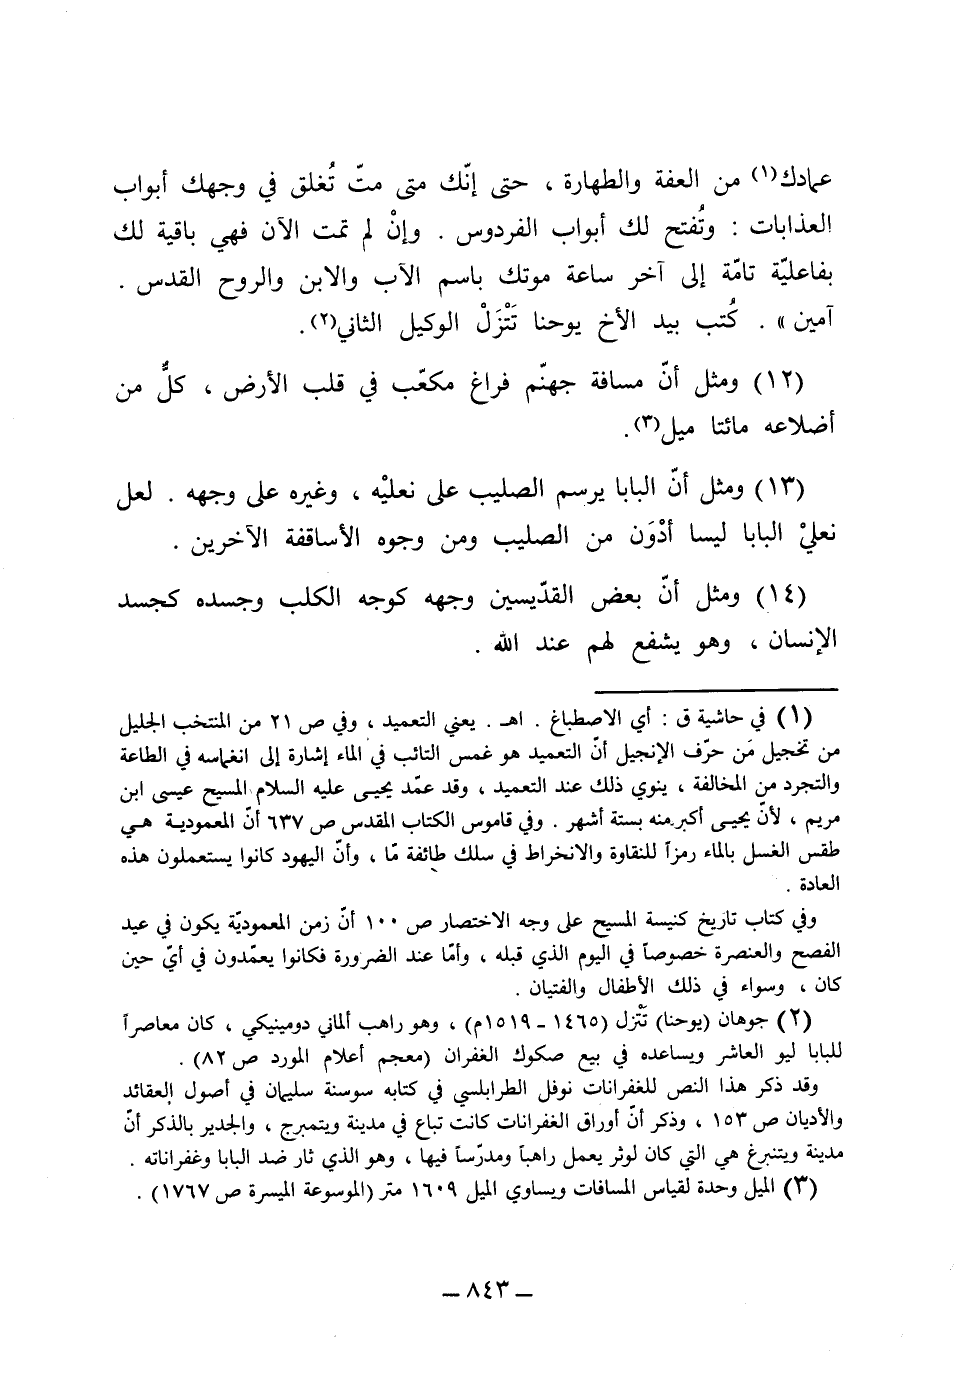 عمادك(١) من العفة والطهارة ، حتى إنّك متى متّ تُغلق في وجهك أبواب
العذابات : وتُفتح لك أبواب الفردوس . وإنْ لم تمت الآن فهي باقية لك
بفاعليّة تامّة إلى آخر ساعة موتك باسم الآب والابن والروح القدس .
آمين » . كُتب بيد الأخ يوحنا تَتْزَلْ الوكيل الثاني(٢).
(١٢) ومثل أنّ مسافة جهنّم فراغ مكعّب في قلب الأرض ، كلُّ من
أضلاعه مائتا ميل(٣).
(١٣) ومثل أنّ البابا يرسم الصليب على نعليْه ، وغيره على وجهه . لعل
نعليْ البابا ليسا أدْوَن من الصليب ومن وجوه الأساقفة الآخرين .
(١٤) ومثل أنّ بعض القدّيسين وجهه كوجه الكلب وجسده كجسد
الإنسان ، وهو يشفع لهم عند الله .
(١) في حاشية ق : أي الاصطباغ . اهـ . يعني التعميد ، وفي ص ٢١ من المنتخب الجليل
من تخجيل مَن حرّف الإنجيل أنّ التعميد هو غمس التائب في الماء إشارة إلى انغماسه في الطاعة
والتجرد من المخالفة ، ينوي ذلك عند التعميد ، وقد عمّد يحيى عليه السلام المسيح عيسى ابن
مريم ، لأنّ يحيى أكبر منه بستة أشهر . وفي قاموس الكتاب المقدس ص ٦٣٧ أنّ المعمودية هي
طقس الغسل بالماء رمزاً للنقاوة والانخراط في سلك طائفة مّا ، وأنّ اليهود كانوا يستعملون هذه
العادة .
وفي كتاب تاريخ كنيسة المسيح على وجه الاختصار ص ١٠٠ أنّ زمن المعموديّة يكون في عيد
الفصح والعنصرة خصوصاً في اليوم الذي قبله ، وأمّا عند الضرورة فكانوا يعمّدون في أيّ حين
كان ، وسواء في ذلك الأطفال والفتيان .
(٢) جوهان (يوحنا) تَتْزل (١٤٦٥ - ١٥١٩م) ، وهو راهب ألماني دومينيكي ، كان معاصراً
للبابا ليو العاشر ويساعده في بيع صكوك الغفران (معجم أعلام المورد ص ٨٢) .
وقد ذكر هذا النص للغفرانات نوفل الطرابلسي في كتابه سوسنة سليمان في أصول العقائد
والأديان ص ١٥٣ ، وذكر أنّ أوراق الغفرانات كانت تباع في مدينة ويتمبرج ، والجدير بالذكر أنّ
مدينة ويتنبرغ هي التي كان لوثر يعمل راهباً ومدرّساً فيها ، وهو الذي ثار ضد البابا وغفراناته .
(٣) الميل وحدة لقياس المسافات ويساوي الميل ١٦٠٩ متر (الموسوعة الميسرة ص ١٧٦٧) .
— ٨٤٣ —